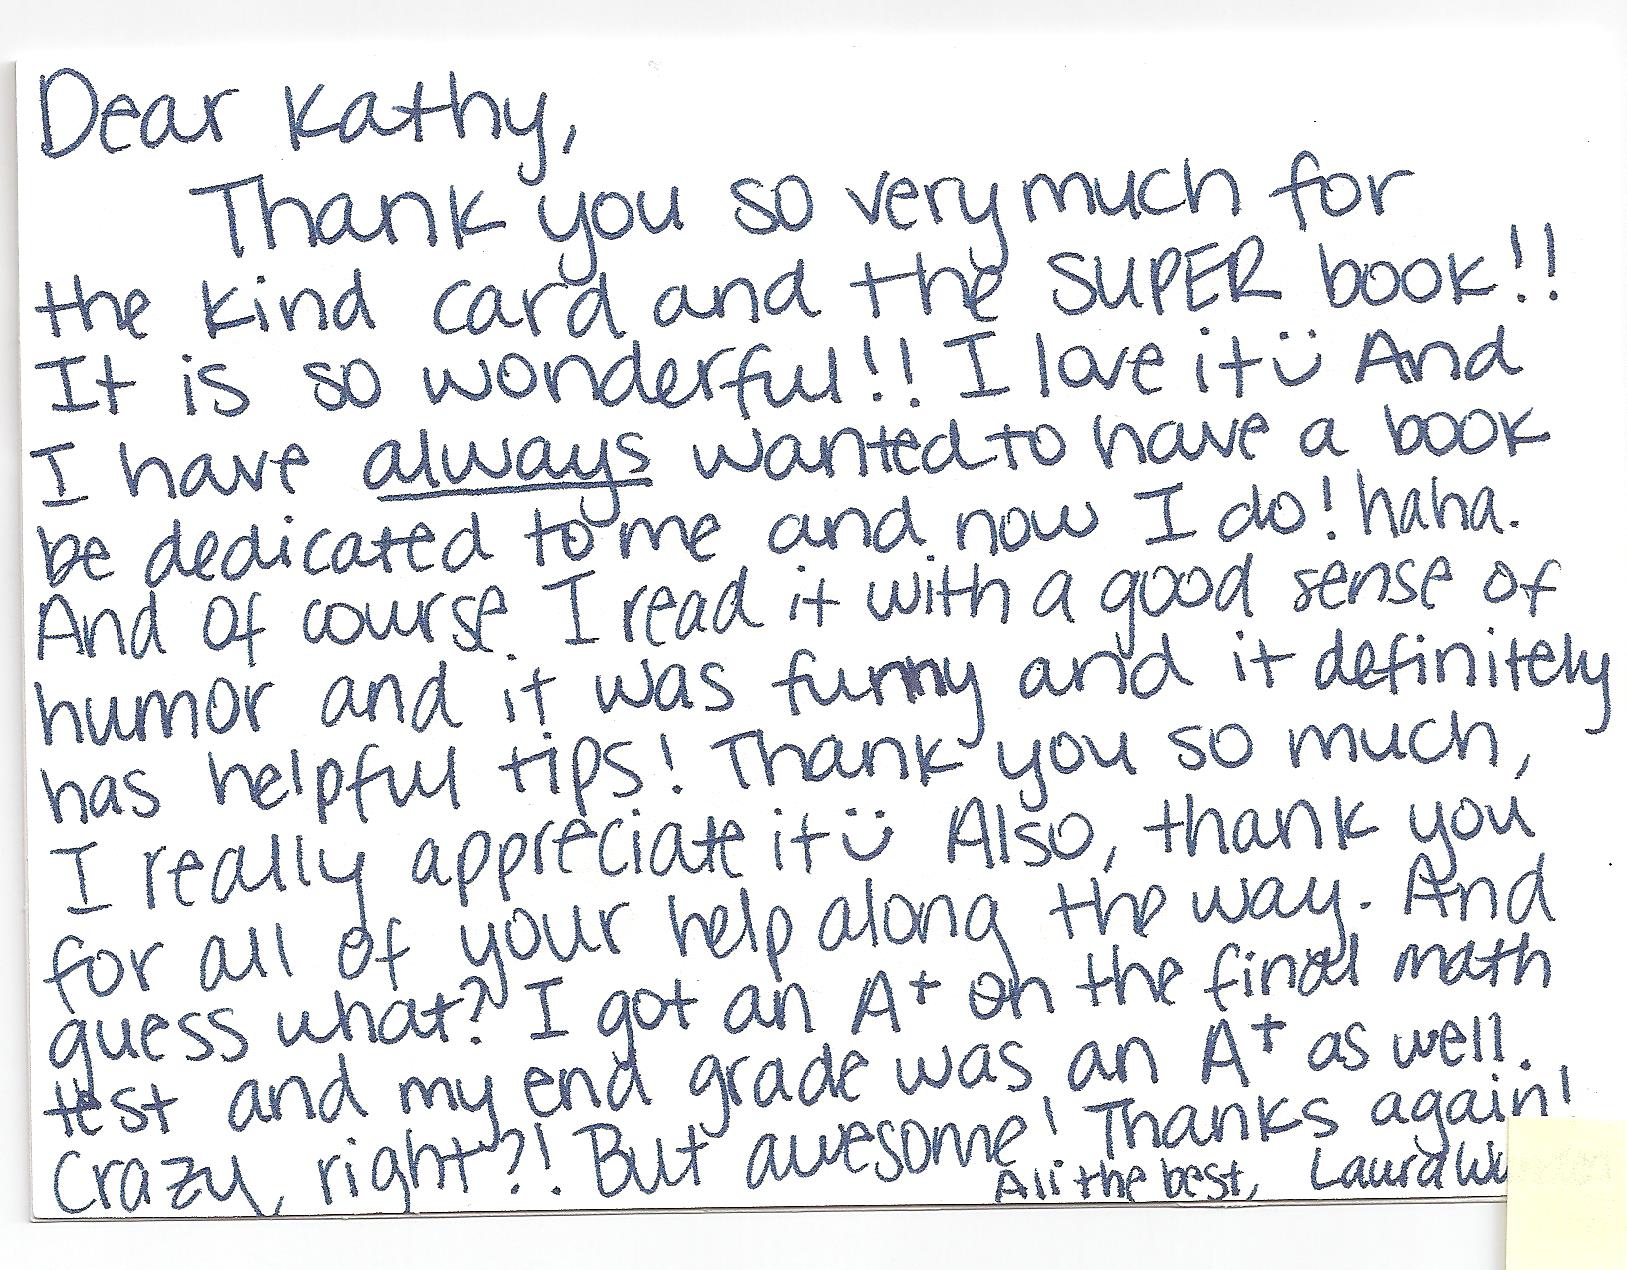 Dear Kathy,
Thank you so very much for
the kind card and the SUPER book!!
It is so wonderful!! I love it ü And
I have always wanted to have a book
be dedicated to me and now I do! haha.
And of course, I read it with a good sense of
humor and it was funny and it definitely
has helpful tips! Thank you so much,
I really appreciate it ü Also, thank you
for all of your help along the way. And
guess what? I got an A+ on the final math
test and my end grade was an A+ as well.
Crazy, right?! But awesome! Thanks again!
All the best, Laura